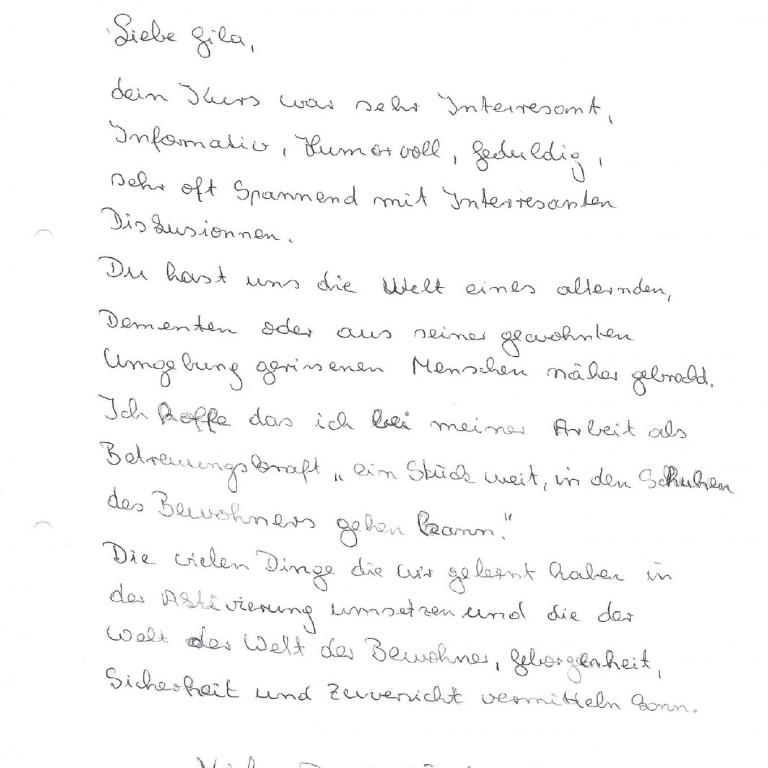 Liebe Gila,
dein Kurs war sehr Interresamt,
Informativ, Humorvoll, geduldig,
sehr oft Spannend mit Interresanten
Diskusionnen.
Du hast uns die Welt eines alternden,
Dementen oder aus seiner gewohnten
Umgebung gerissenen Menschen näher gebracht.
Ich hoffe das ich bei meiner Arbeit als
Betreuungskraft „ein Stück weit, in den Schuhen
des Bewohners gehen kann."
Die vielen Dinge die wir gelernt haben in
der Aktivierung umsetzen und die der
Welt der Welt der Bewohner, Geborgenheit,
Sicherheit und Zuversicht vermitteln kann.